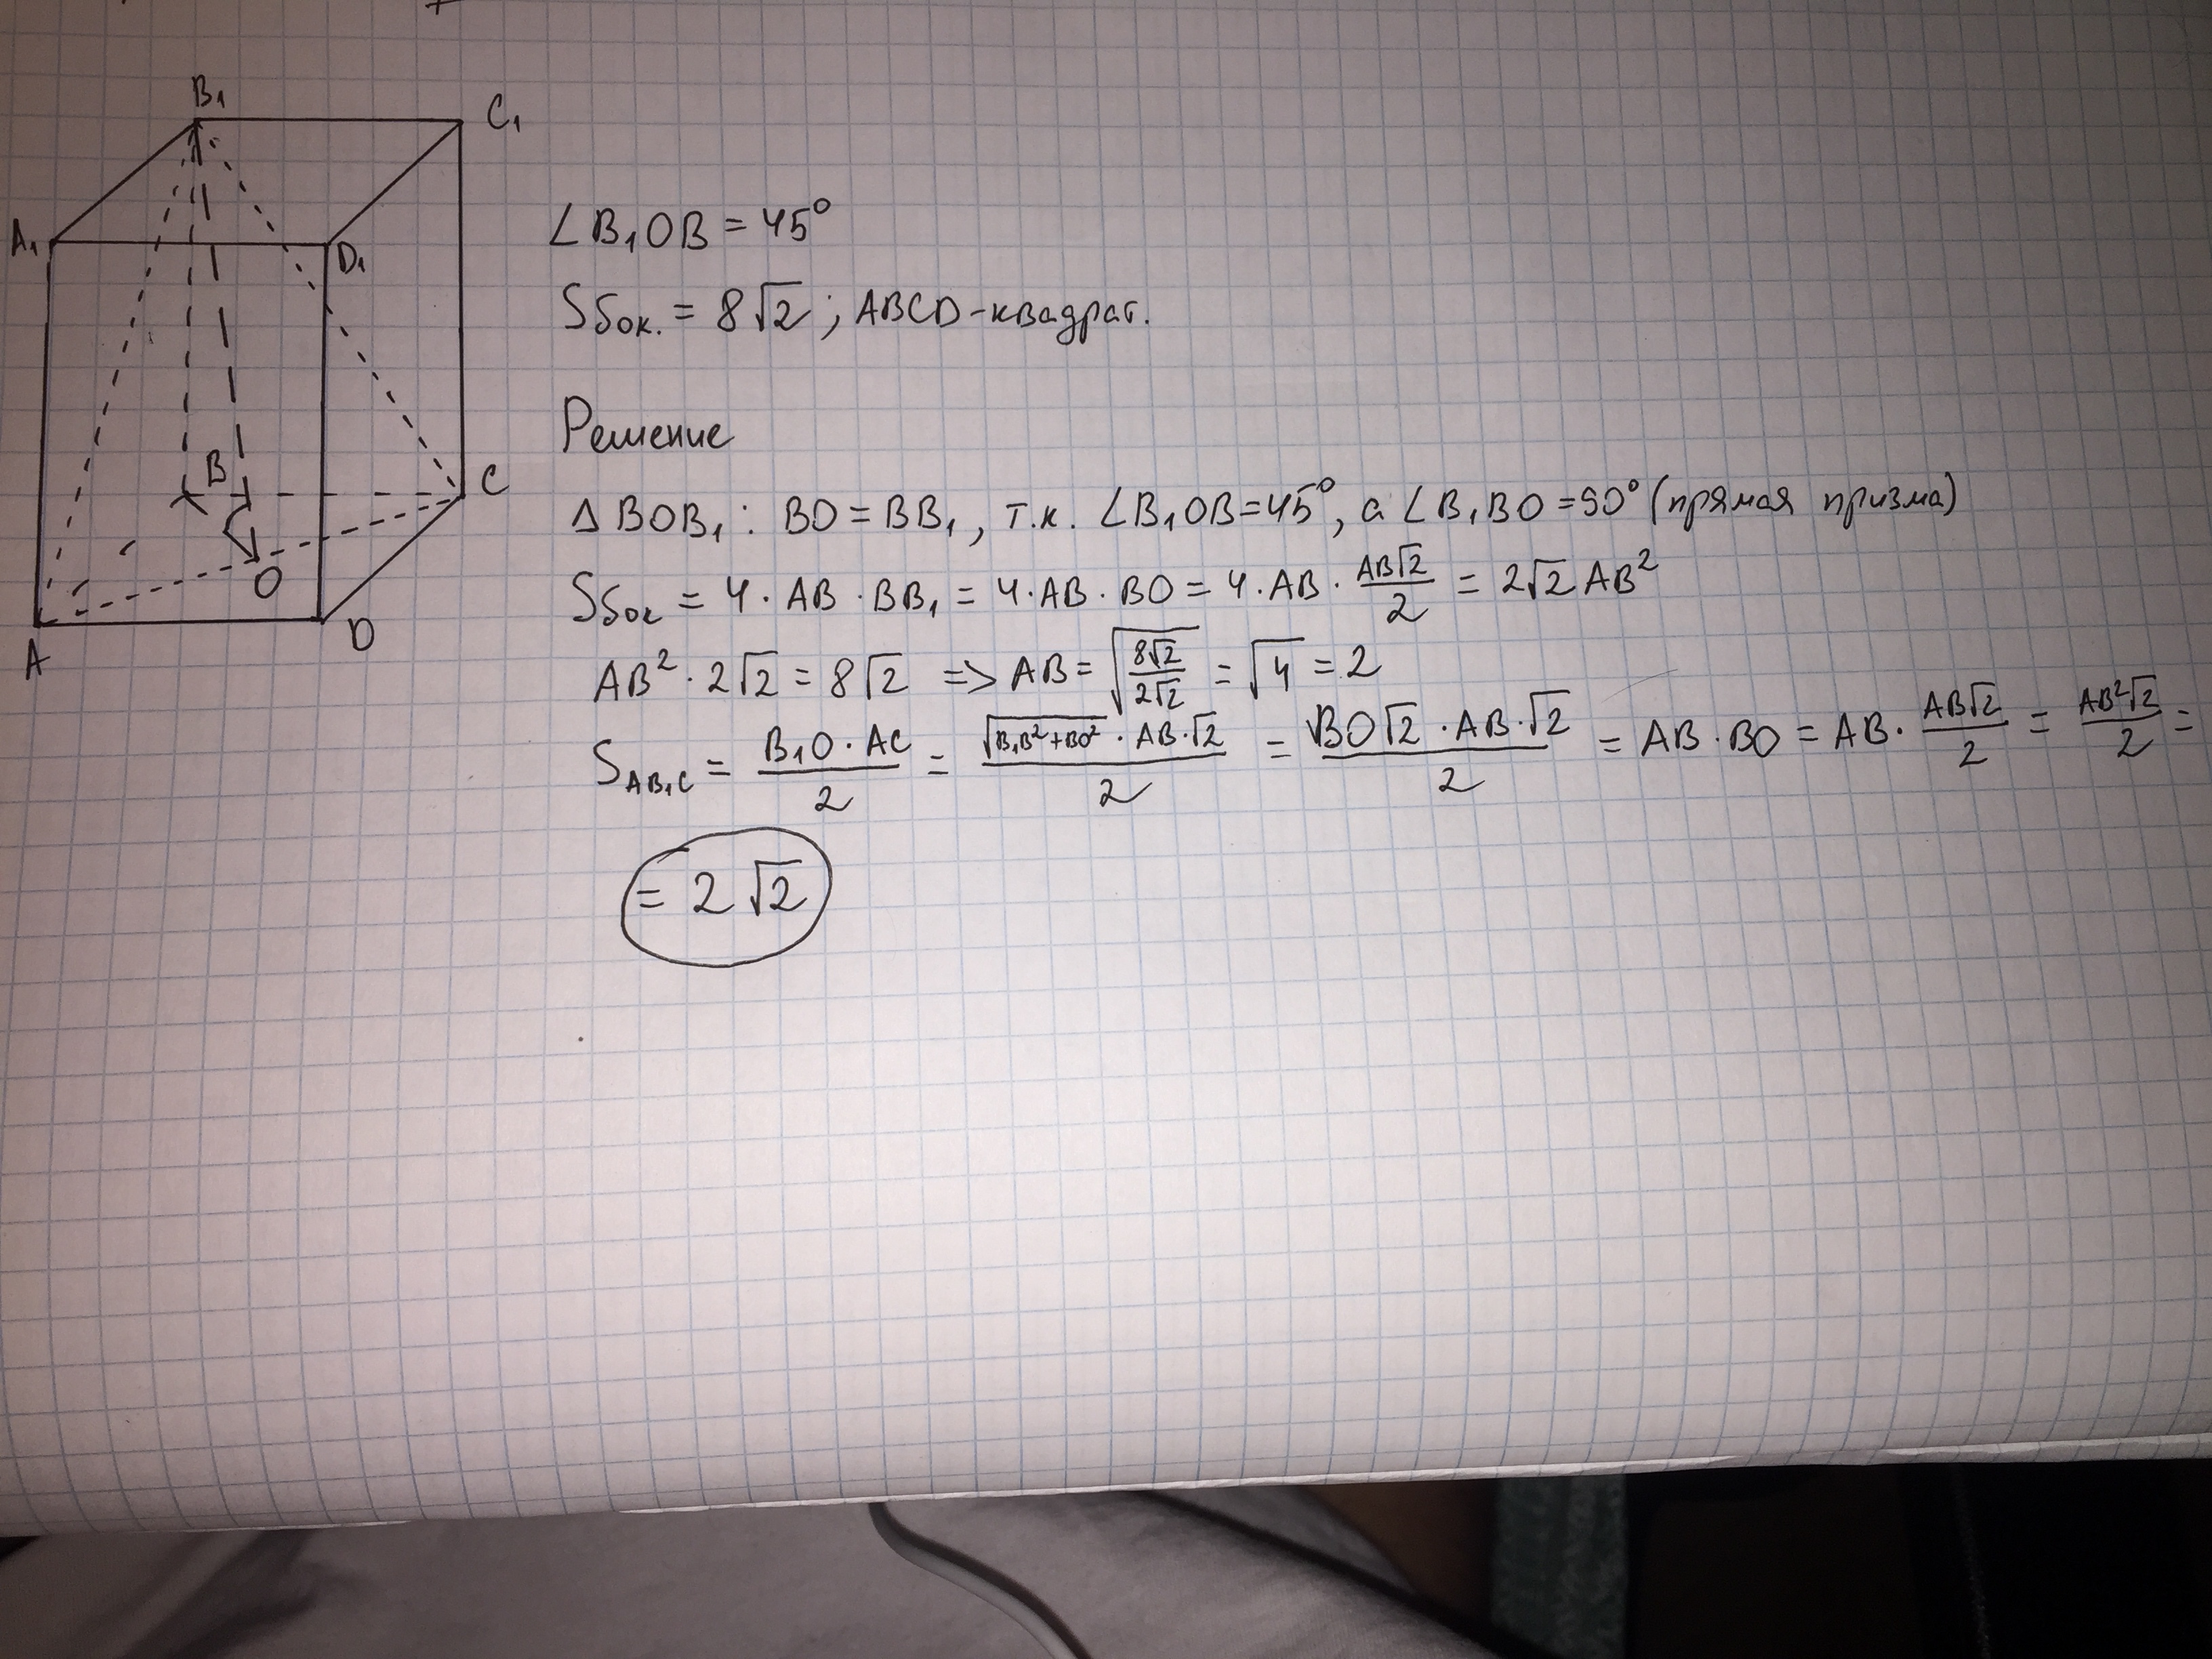 B₁
C₁
A₁
D₁
B
C
O
A
D
∠B₁OB = 45°
Sбок. = 8√2 ; ABCD-квадрат.
Решение
Δ BOB₁ : BO = BB₁ , т.к. ∠B₁OB=45°, а ∠B₁BO =90° (прямая призма)
Sбок = 4 · AB · BB₁ = 4·AB · BO = 4·AB · AB√2/2 = 2√2 AB²
AB² · 2√2 = 8√2 => AB = √(8√2/2√2) = √4 = 2
S_AB₁C = B₁O · AC/2 = √(B₁B²+BO²) · AB·√2/2 = BO√2 · AB·√2/2 = AB·BO = AB· AB√2/2 = AB²√2/2 =
= 2√2